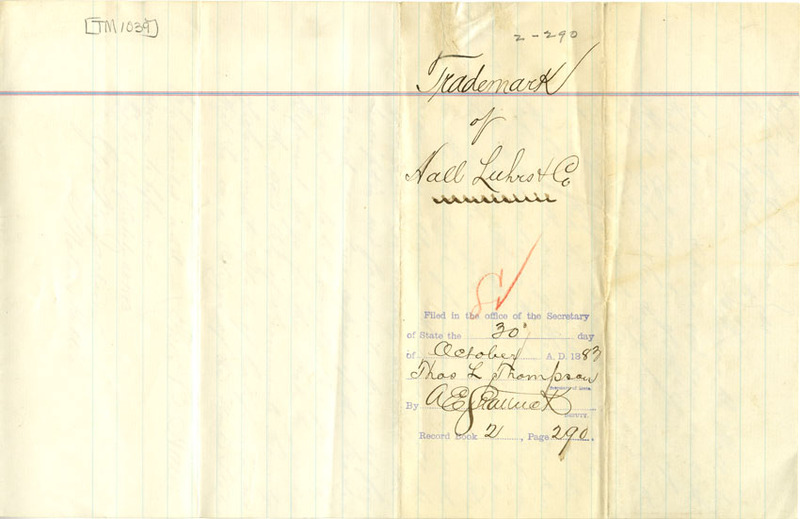 [TM 1039]
2-290
Trademark
of
Hall Luhrs & Co
Filed in the office of the Secretary
of State the 30 day
of October A. D. 1883
Thos L Thompson
Secretary of State.
By A E
DEPUTY.
Record Book 2, Page 290.